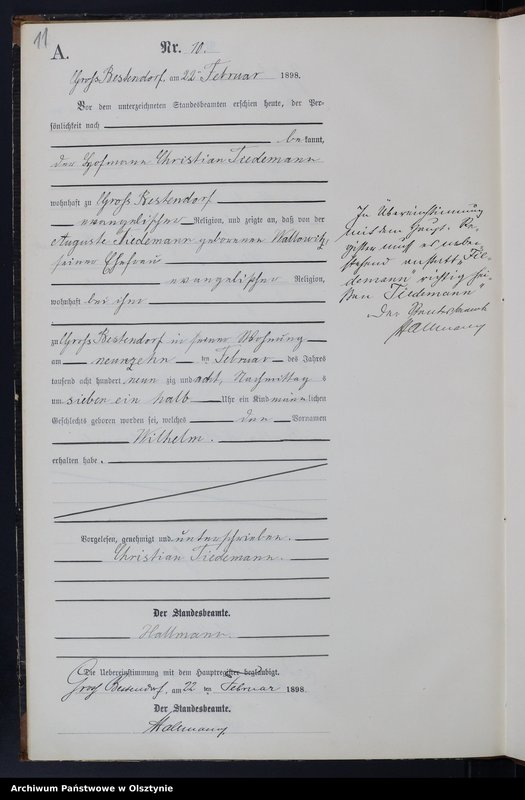 11
A.
Nr. 10.
Groß Bestendorf, am 22ten Februar 1898.
Vor dem unterzeichneten Standesbeamten erschien heute, der Per-
sönlichkeit nach
bekannt,
der Hofmann Christian Tiedemann
wohnhaft zu Groß Bestendorf
evangelischer Religion, und zeigte an, daß von der
Auguste Tiedemann geborenen Wallowitz
seiner Ehefrau
evangelischer Religion,
wohnhaft bei ihm
zu Groß Bestendorf in seiner Wohnung
am neunzehn ten Februar des Jahres
tausend acht hundert neun zig und acht, Nachmittag s
um sieben ein halb Uhr ein Kind männlichen
Geschlechts geboren worden sei, welches den Vornamen
Wilhelm.
erhalten habe.
Vorgelesen, genehmigt und unterschrieben.
Christian Tiedemann.
Der Standesbeamte.
Hallmann.
Die Uebereinstimmung mit dem Hauptregister beglaubigt.
Groß Bestendorf, am 22 ten Februar 1898.
Der Standesbeamte.
Hallmann
In Übereinstimmung
mit dem Haupt-Re-
gister muß es neben-
stehend anstatt „Tie-
demann" richtig hei-
ßen „Tiedemann"
Der Standesbeamte
Hallmann
Archiwum Państwowe w Olsztynie